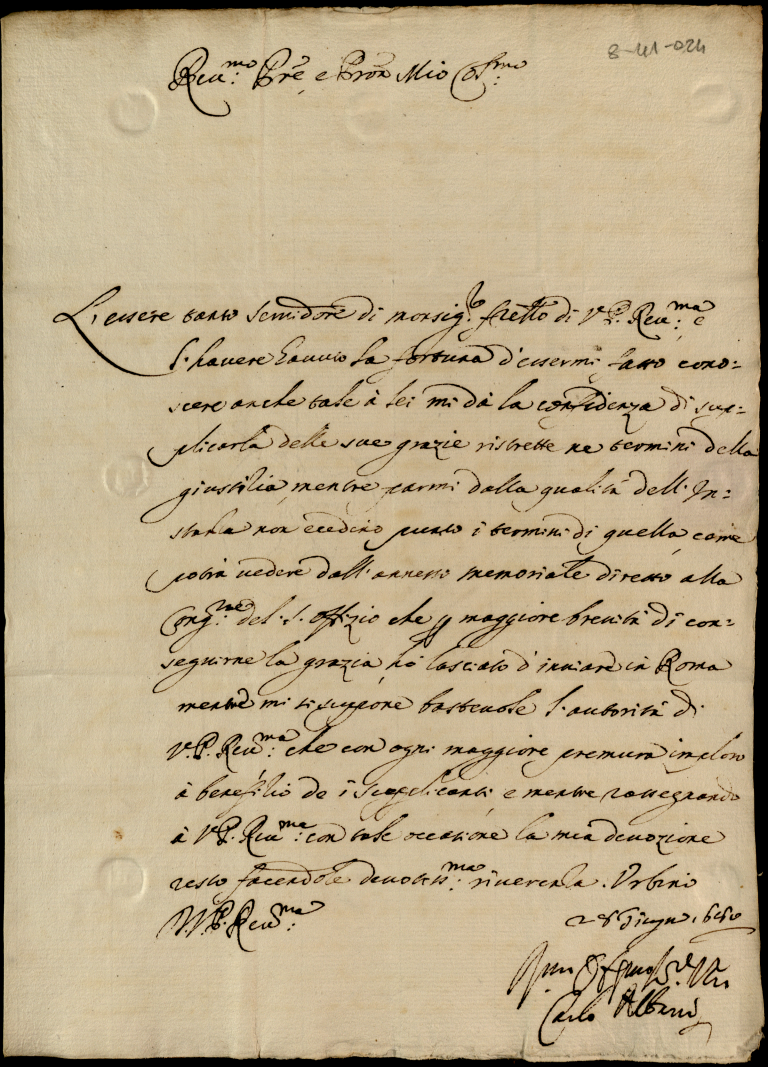 8-41-024
Reu:mo Pre, e Pron Mio Col:mo
L'essere tanto seruidore di monsig:r fratello di V.P. Reu:ma, e
l'hauere hauuto la fortuna d'essermi fatto cono=
scere anche tale à lei mi dà la confidenza di sup=
plicarla delle sue grazie ristrette ne termini della
giustitia, mentre parmi dalla qualità dell'In=
stanza non eccedino punto i termini di quella, come
potrà uedere dall'annesso memoriale diretto alla
Cong:ne del S. Offizio che p maggiore breuità di con=
seguirne la grazia, hò lasciato d'inuiare in Roma
mentre mi si suppone basteuole l'autorità di
V.P. Reu:ma che con ogni maggiore premura imploro
à benefitio de i supplicanti, e mentre rassegnando
à V.P. Reu:ma con tale occasione la mia deuozione
resto facendole deuotis:ma riuerenza. Urbino
V.P. Reu:ma
28 Giugn.
Carlo Albani